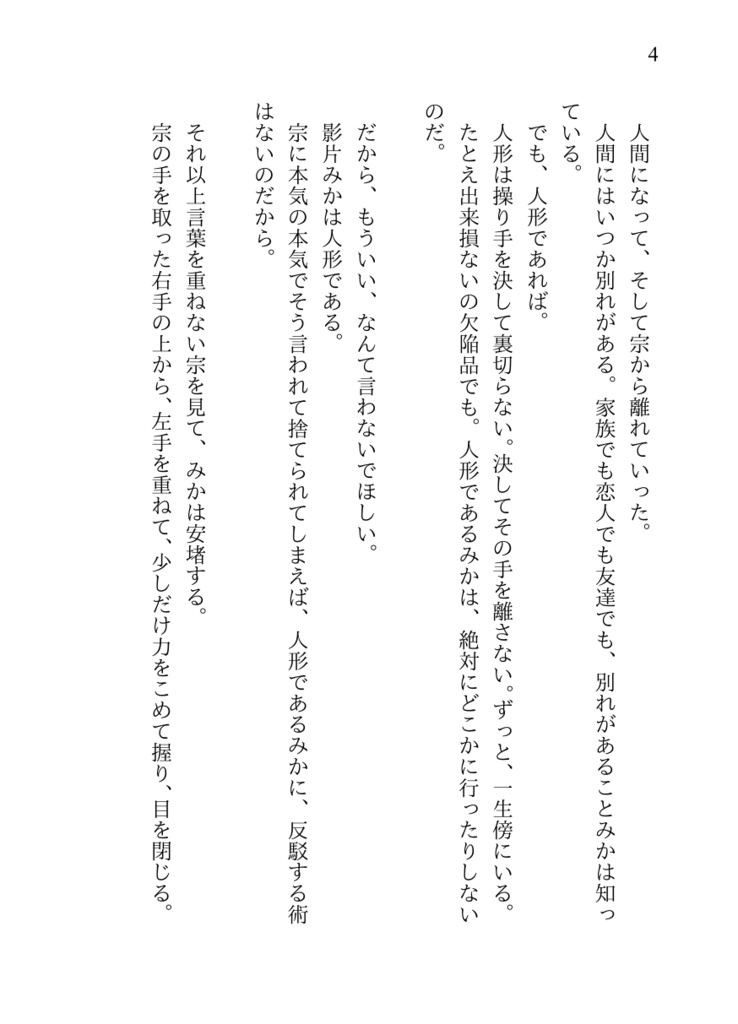 4
人間になって、そして宗から離れていった。
人間にはいつか別れがある。家族でも恋人でも友達でも、別れがあることみかは知っ
ている。
でも、人形であれば。
人形は操り手を決して裏切らない。決してその手を離さない。ずっと、一生傍にいる。
たとえ出来損ないの欠陥品でも。人形であるみかは、絶対にどこかに行ったりしない
のだ。
だから、もういい、なんて言わないでほしい。
影片みかは人形である。
宗に本気の本気でそう言われて捨てられてしまえば、人形であるみかに、反駁する術
はないのだから。
それ以上言葉を重ねない宗を見て、みかは安堵する。
宗の手を取った右手の上から、左手を重ねて、少しだけ力をこめて握り、目を閉じる。